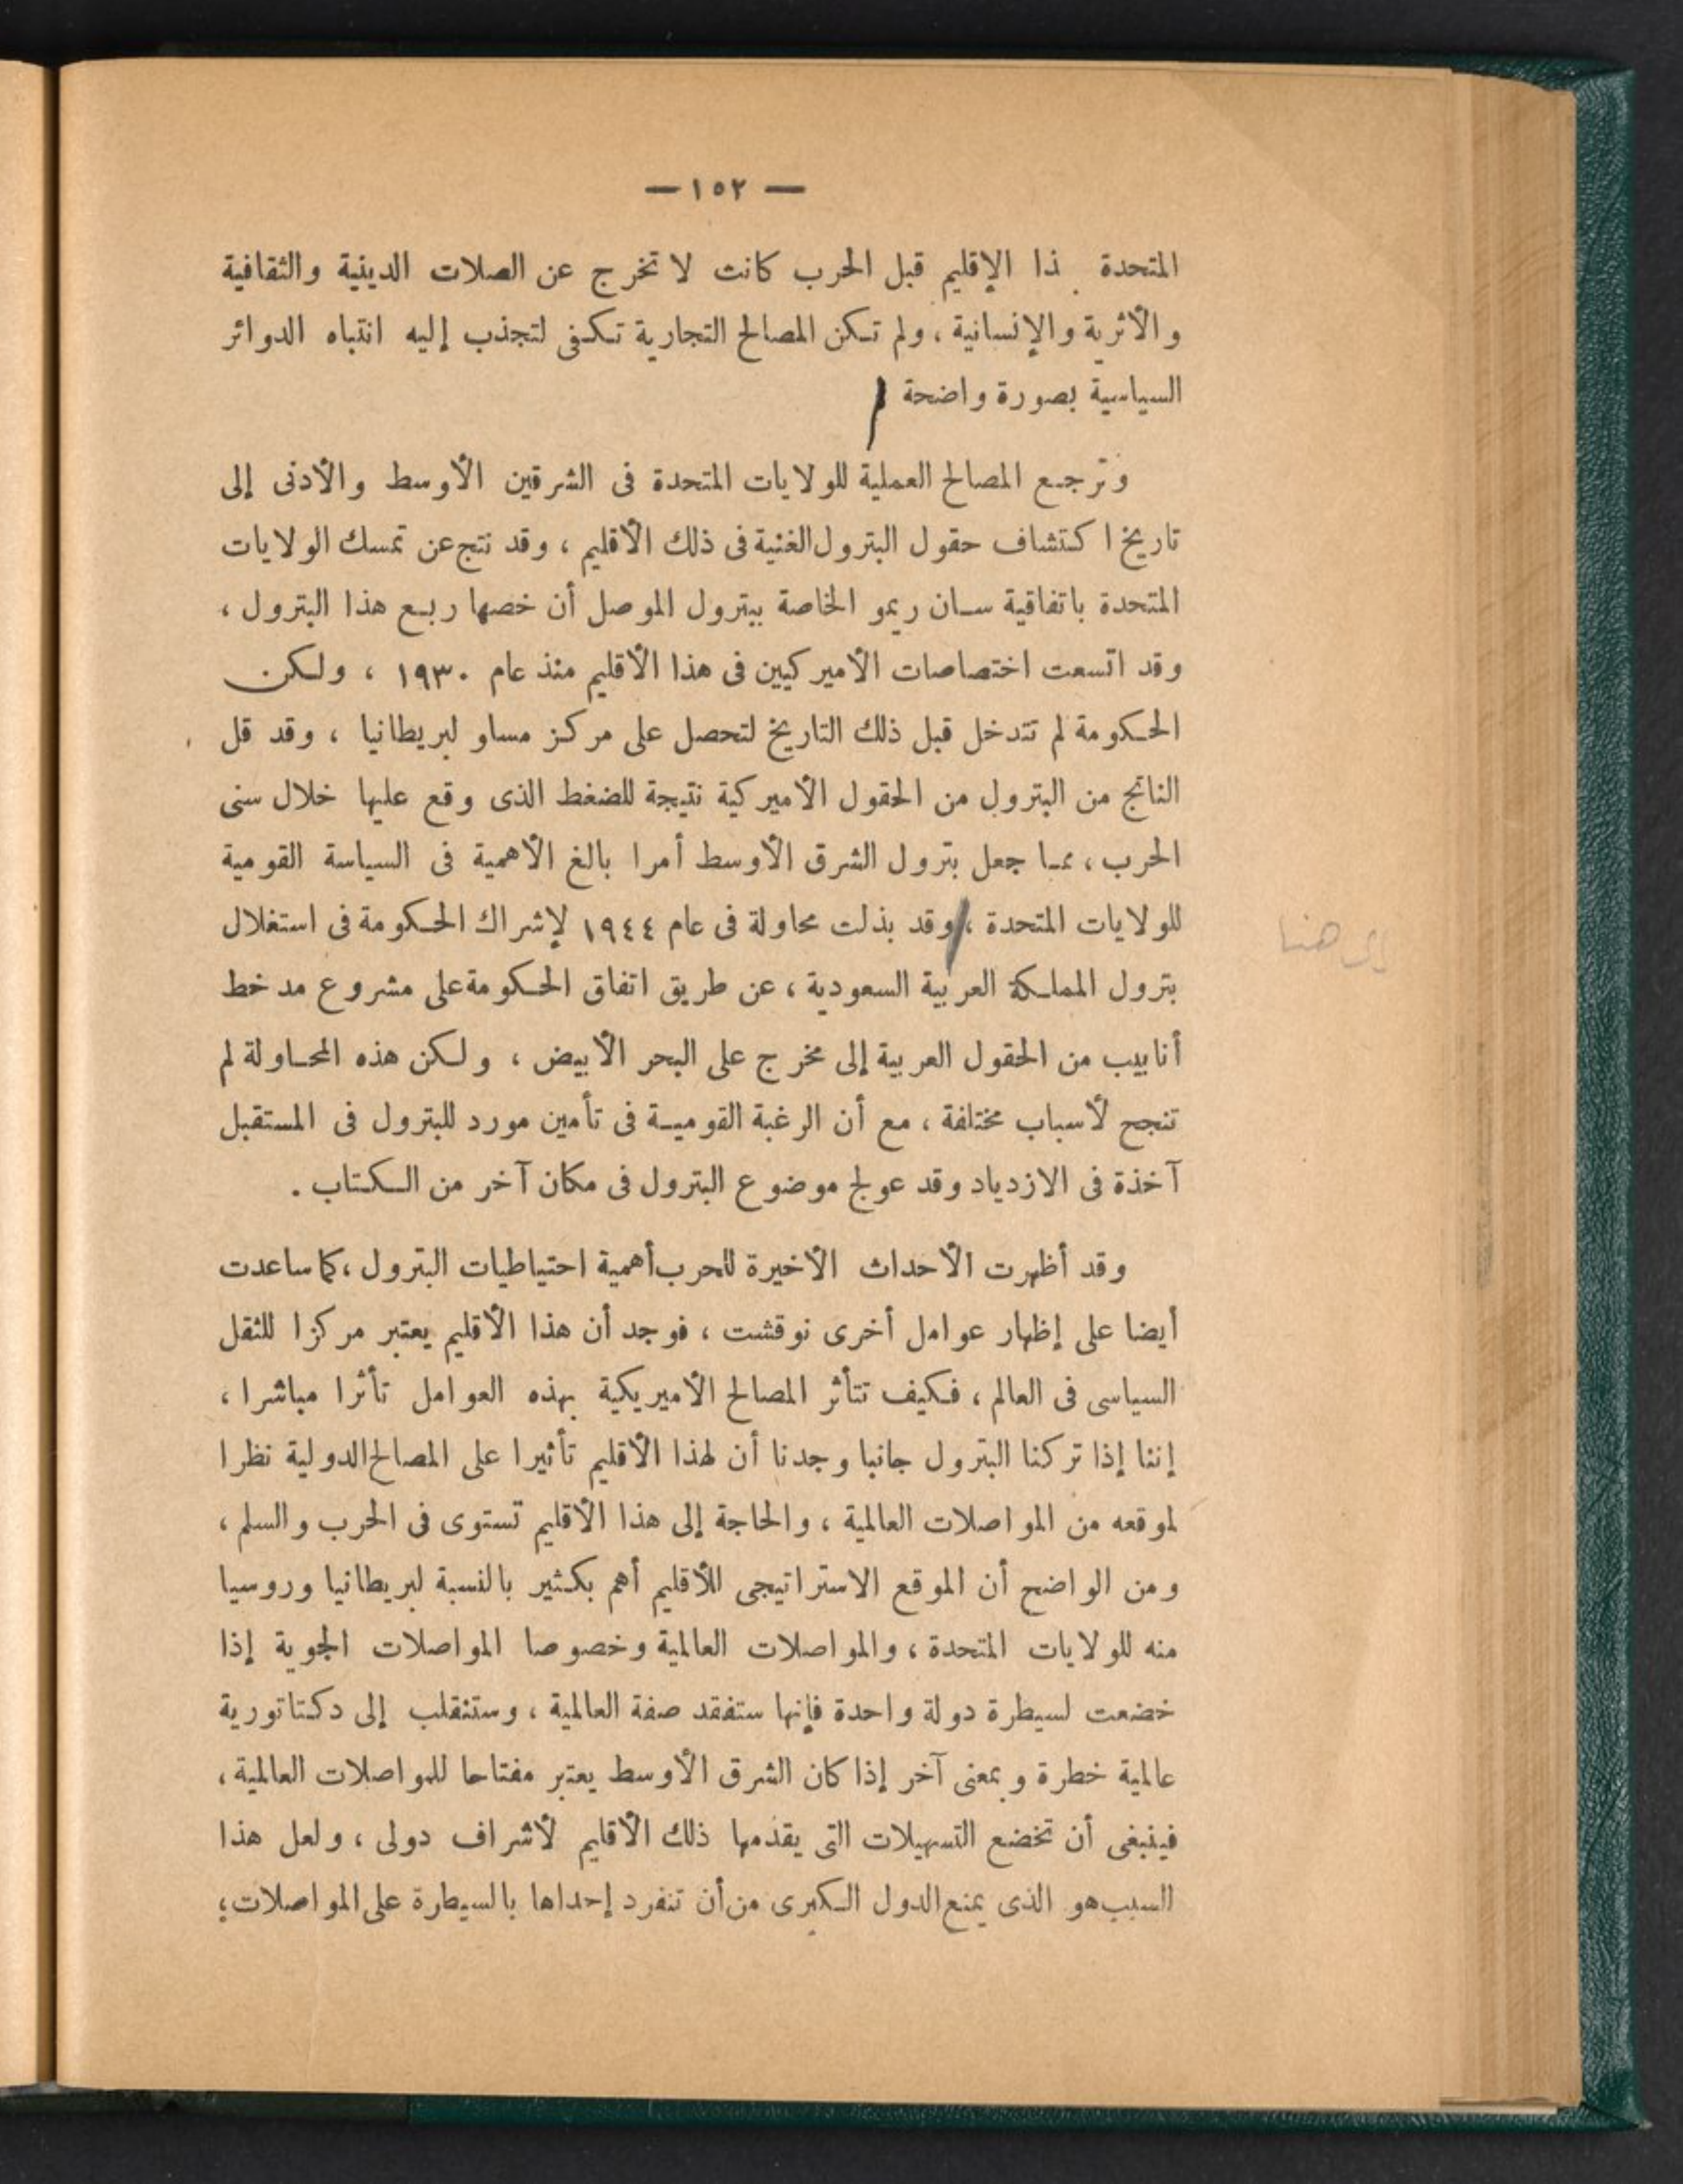 — ١٥٢ —
المتحدة ذا الإقليم قبل الحرب كانت لا تخرج عن الصلات الدينية والثقافية
والأثرية والإنسانية ، ولم تكن المصالح التجارية تكفى لتجذب إليه انتباه الدوائر
السياسية بصورة واضحة
وترجع المصالح العملية للولايات المتحدة فى الشرقين الأوسط والأدنى إلى
تاريخ اكتشاف حقول البترول الغنية فى ذلك الأقليم ، وقد نتج عن تمسك الولايات
المتحدة باتفاقية سان ريمو الخاصة ببترول الموصل أن خصها ربع هذا البترول ،
وقد اتسعت اختصاصات الأميركيين فى هذا الأقليم منذ عام ١٩٣٠ ، ولكن
الحكومة لم تتدخل قبل ذلك التاريخ لتحصل على مركز مساو لبريطانيا ، وقد قل
الناتج من البترول من الحقول الأميركية نتيجة للضغط الذى وقع عليها خلال سنى
الحرب ، مما جعل بترول الشرق الأوسط أمرا بالغ الأهمية فى السياسة القومية
للولايات المتحدة ، وقد بذلت محاولة فى عام ١٩٤٤ لإشراك الحكومة فى استغلال
الى هنا
بترول المملكة العربية السعودية ، عن طريق اتفاق الحكومة على مشروع مد خط
أنابيب من الحقول العربية إلى مخرج على البحر الأبيض ، ولكن هذه المحاولة لم
تنجح لأسباب مختلفة ، مع أن الرغبة القومية فى تأمين مورد للبترول فى المستقبل
آخذة فى الازدياد وقد عولج موضوع البترول فى مكان آخر من الكتاب .
وقد أظهرت الأحداث الأخيرة للحرب أهمية احتياطيات البترول ، كما ساعدت
أيضا على إظهار عوامل أخرى نوقشت ، فوجد أن هذا الأقليم يعتبر مركزا للثقل
السياسى فى العالم ، فكيف تتأثر المصالح الأميريكية بهذه العوامل تأثرا مباشرا ،
إننا إذا تركنا البترول جانبا وجدنا أن لهذا الأقليم تأثيرا على المصالح الدولية نظرا
لموقعه من المواصلات العالمية ، والحاجة إلى هذا الأقليم تستوى فى الحرب والسلم ،
ومن الواضح أن الموقع الاستراتيجى للأقليم أهم بكثير بالنسبة لبريطانيا وروسيا
منه للولايات المتحدة ، والمواصلات العالمية وخصوصا المواصلات الجوية إذا
خضعت لسيطرة دولة واحدة فإنها ستفقد صفة العالمية ، وستنقلب إلى دكتاتورية
عالمية خطرة وبمعنى آخر إذا كان الشرق الأوسط يعتبر مفتاحا للمواصلات العالمية ،
فينبغى أن تخضع التسهيلات التى يقدمها ذلك الأقليم لأشراف دولى ، ولعل هذا
السبب هو الذى يمنع الدول الكبرى من أن تنفرد إحداها بالسيطرة على المواصلات ؛